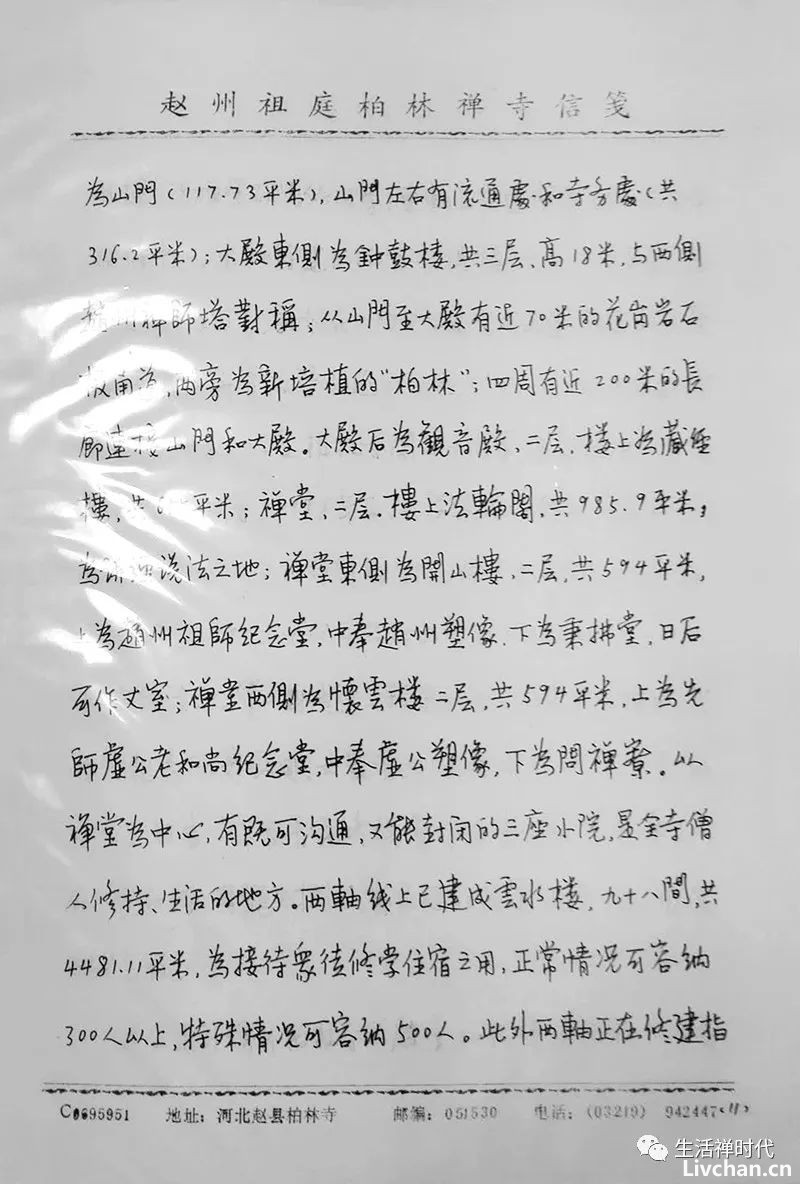 赵州祖庭柏林禅寺信笺
為山門(117.73平米),山門左右有流通處和寺务處(共
316.2平米);大殿東側為鐘鼓楼,共三层、高18米,与西側
趙州禅師塔對稱;从山門至大殿有近70米的花岗岩石
板甬道,两旁為新培植的“柏林”;四周有近200米的長
廊連接山門和大殿。大殿后為觀音殿,二层,楼上為藏經
樓,共 平米;禅堂,二层.樓上法輪閣,共985.9平米,
為 说法之地;禅堂東側為開山樓,二层,共594平米,
上為趙州祖師纪念堂,中奉趙州塑像.下為秉拂堂,日后
可作丈室;禅堂西側為懷雲樓 二层,共594平米,上為先
師虚公老和尚纪念堂,中奉虚公塑像,下為問禅寮。以
禅堂為中心,有既可沟通,又能封闭的三座小院,是全寺僧
人修持、生活的地方。西軸线上已建成雲水楼,九十八間,共
4481.11平米,為接待衆信修学住宿之用,正常情况可容纳
300人以上,特殊情况可容纳500人。此外西軸正在修建指
C0695951 地址:河北赵县柏林寺 邮编:051530 电话:(03219) 942447
生活禅时代
Livchan.cn